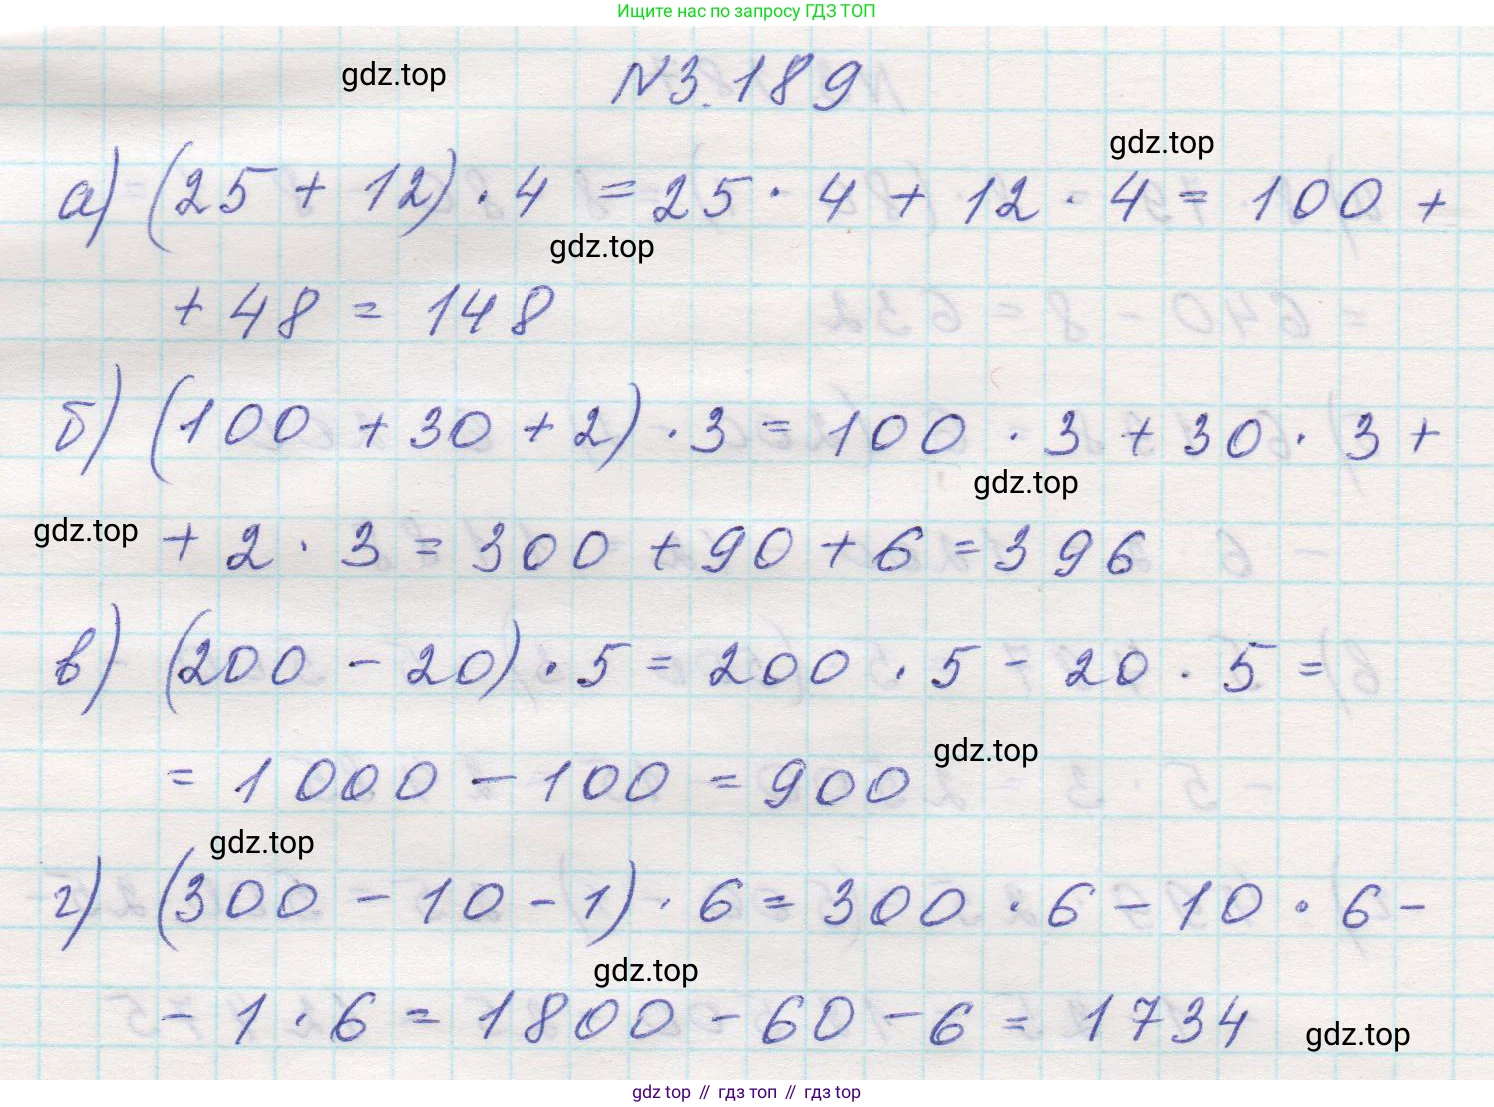 Ищите нас по запросу ГДЗ ТОП
gdz.top
№3.189
gdz.top
а) (25 + 12) · 4 = 25 · 4 + 12 · 4 = 100 +
gdz.top
+ 48 = 148
б) (100 + 30 + 2) · 3 = 100 · 3 + 30 · 3 +
gdz.top
gdz.top
+ 2 · 3 = 300 + 90 + 6 = 396
в) (200 - 20) · 5 = 200 · 5 - 20 · 5 =
gdz.top
= 1000 - 100 = 900
gdz.top
г) (300 - 10 - 1) · 6 = 300 · 6 - 10 · 6 -
gdz.top
- 1 · 6 = 1800 - 60 - 6 = 1734
gdz.top
gdz top // гдз топ // gdz top